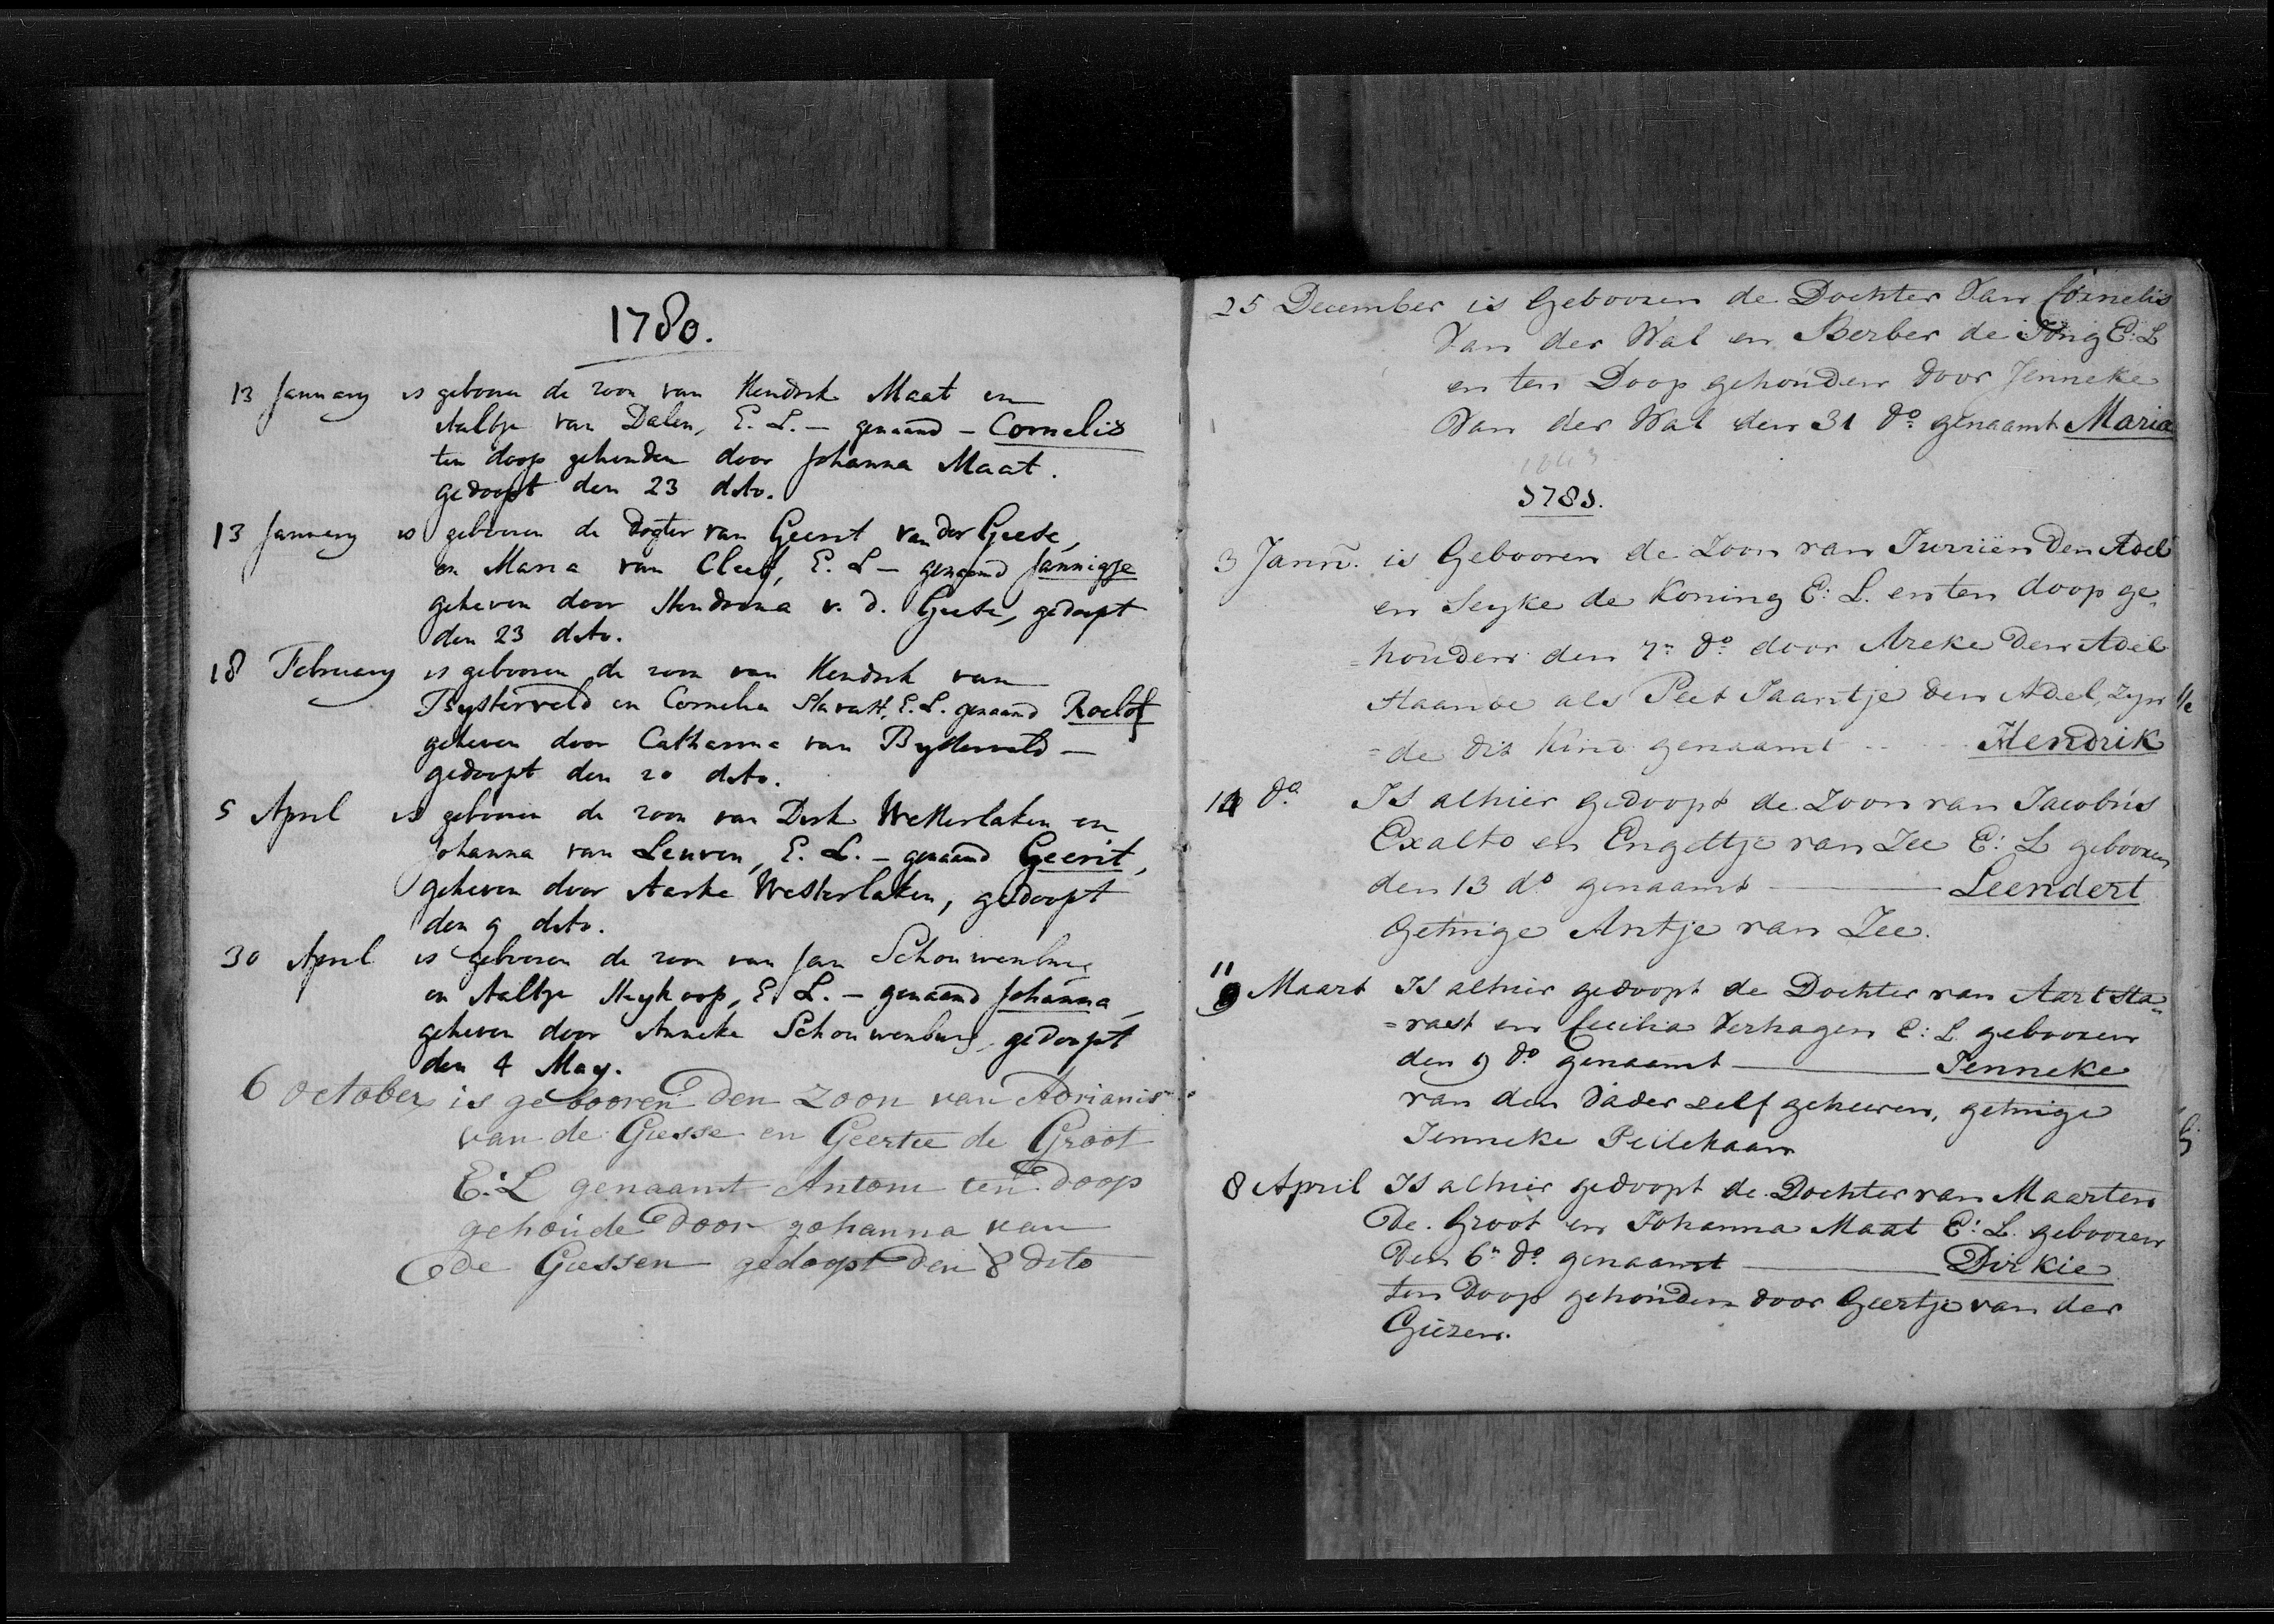 1780.
13 January is geboren de zoon van Hendrik Maat en
Aaltje van Dalen, E. L. — genaamd — Cornelis
ten doop gehouden door Johanna Maat.
gedoopt den 23 dito.
13 January is geboren de dogter van Geerit van der Giese,
en Maria van Cleef, E. L — genaamd Jannigje
geheven door Hendrina v. d. Giese, gedoopt
den 23 dito.
18 February is geboren de zoon van Hendrik van
Bysterveld en Cornelia E. L. genaamd Roelof
geheven door Catharina van Bysterveld —
gedoopt den 20 dito.
5 April is geboren de zoon van Dirk Westerlaken en
Johanna van Leuven, E. L. — genaamd Geerit,
geheven door Westerlaken, gedoopt
den 9 dito.
30 April is geboren de zoon van Jan Schouwenburg
en Aaltje Heykoop, E. L. — genaamd Johanna,
geheven door Anneke Schouwenburg, gedoopt
den 4 May.
6 October is gebooren Den zoon van Adrianis
van de Giesse en Geertie de Groot
E: L genaamt Antoni ten Doop
gehoude Door johanna van
de Giessen gedoopt Den 8 dito
25 December is Gebooren de Dochter Van Cornelis
Van der Wal en Berber de Jong E: L
en ten Doop gehouden door Jenneke
Van der Wal den 31 do genaamt Maria
1781.
3 Jann. is Gebooren de Zoon van Jurrien Den Adel
en Seyke de Koning E: L. en ten doop ge„
=houden den 7n do door Areke Den Adel
staande als Peet Jaantje den Adel, zyn
=de dit Kind genaamt Hendrik
14 do Is alhier gedoopt de Zoon van Jacobus
Exalto en Engeltje van Zee E: L gebooren
den 13 do genaamt — Leendert
getuige Antje van Zee.
11
9 Maart Is alhier gedoopt de Dochter van Aart Sta„
=rast en Cecilia Verhagen E: L. gebooren
den 9 do genaamt — Jenneke
van den Vader self geheeven, getuige
Jenneke Peilekaan
8 April Is alhier gedoopt de Dochter van Maarten
De Groot en Johanna Maat E: L. gebooren
Den 6n do genaamt — Dirkie
ten Doop gehouden door Geertje van der
Giezen.